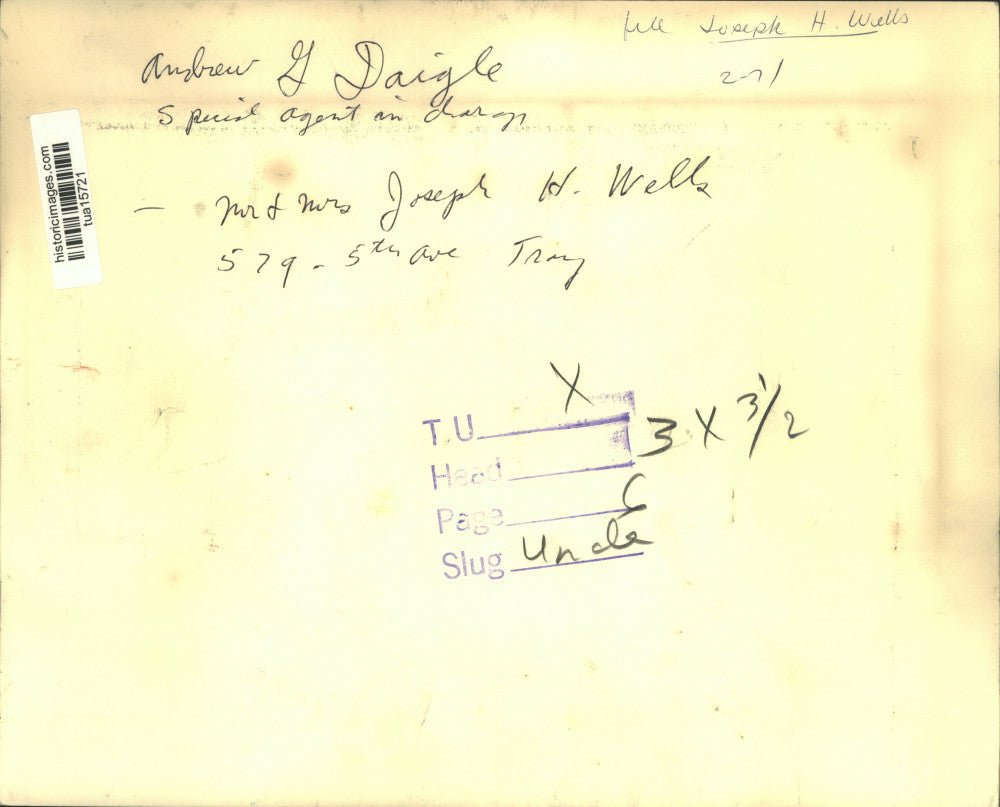 file Joseph H. Wells
2-71
Andrew G Daigle
Special agent in charge
historicimages.com
tua15721
— Mr & Mrs Joseph H. Wells
579 - 5th Ave Troy
X
T.U.
3 X 3 1/2
Head
Page C
Slug Uncle